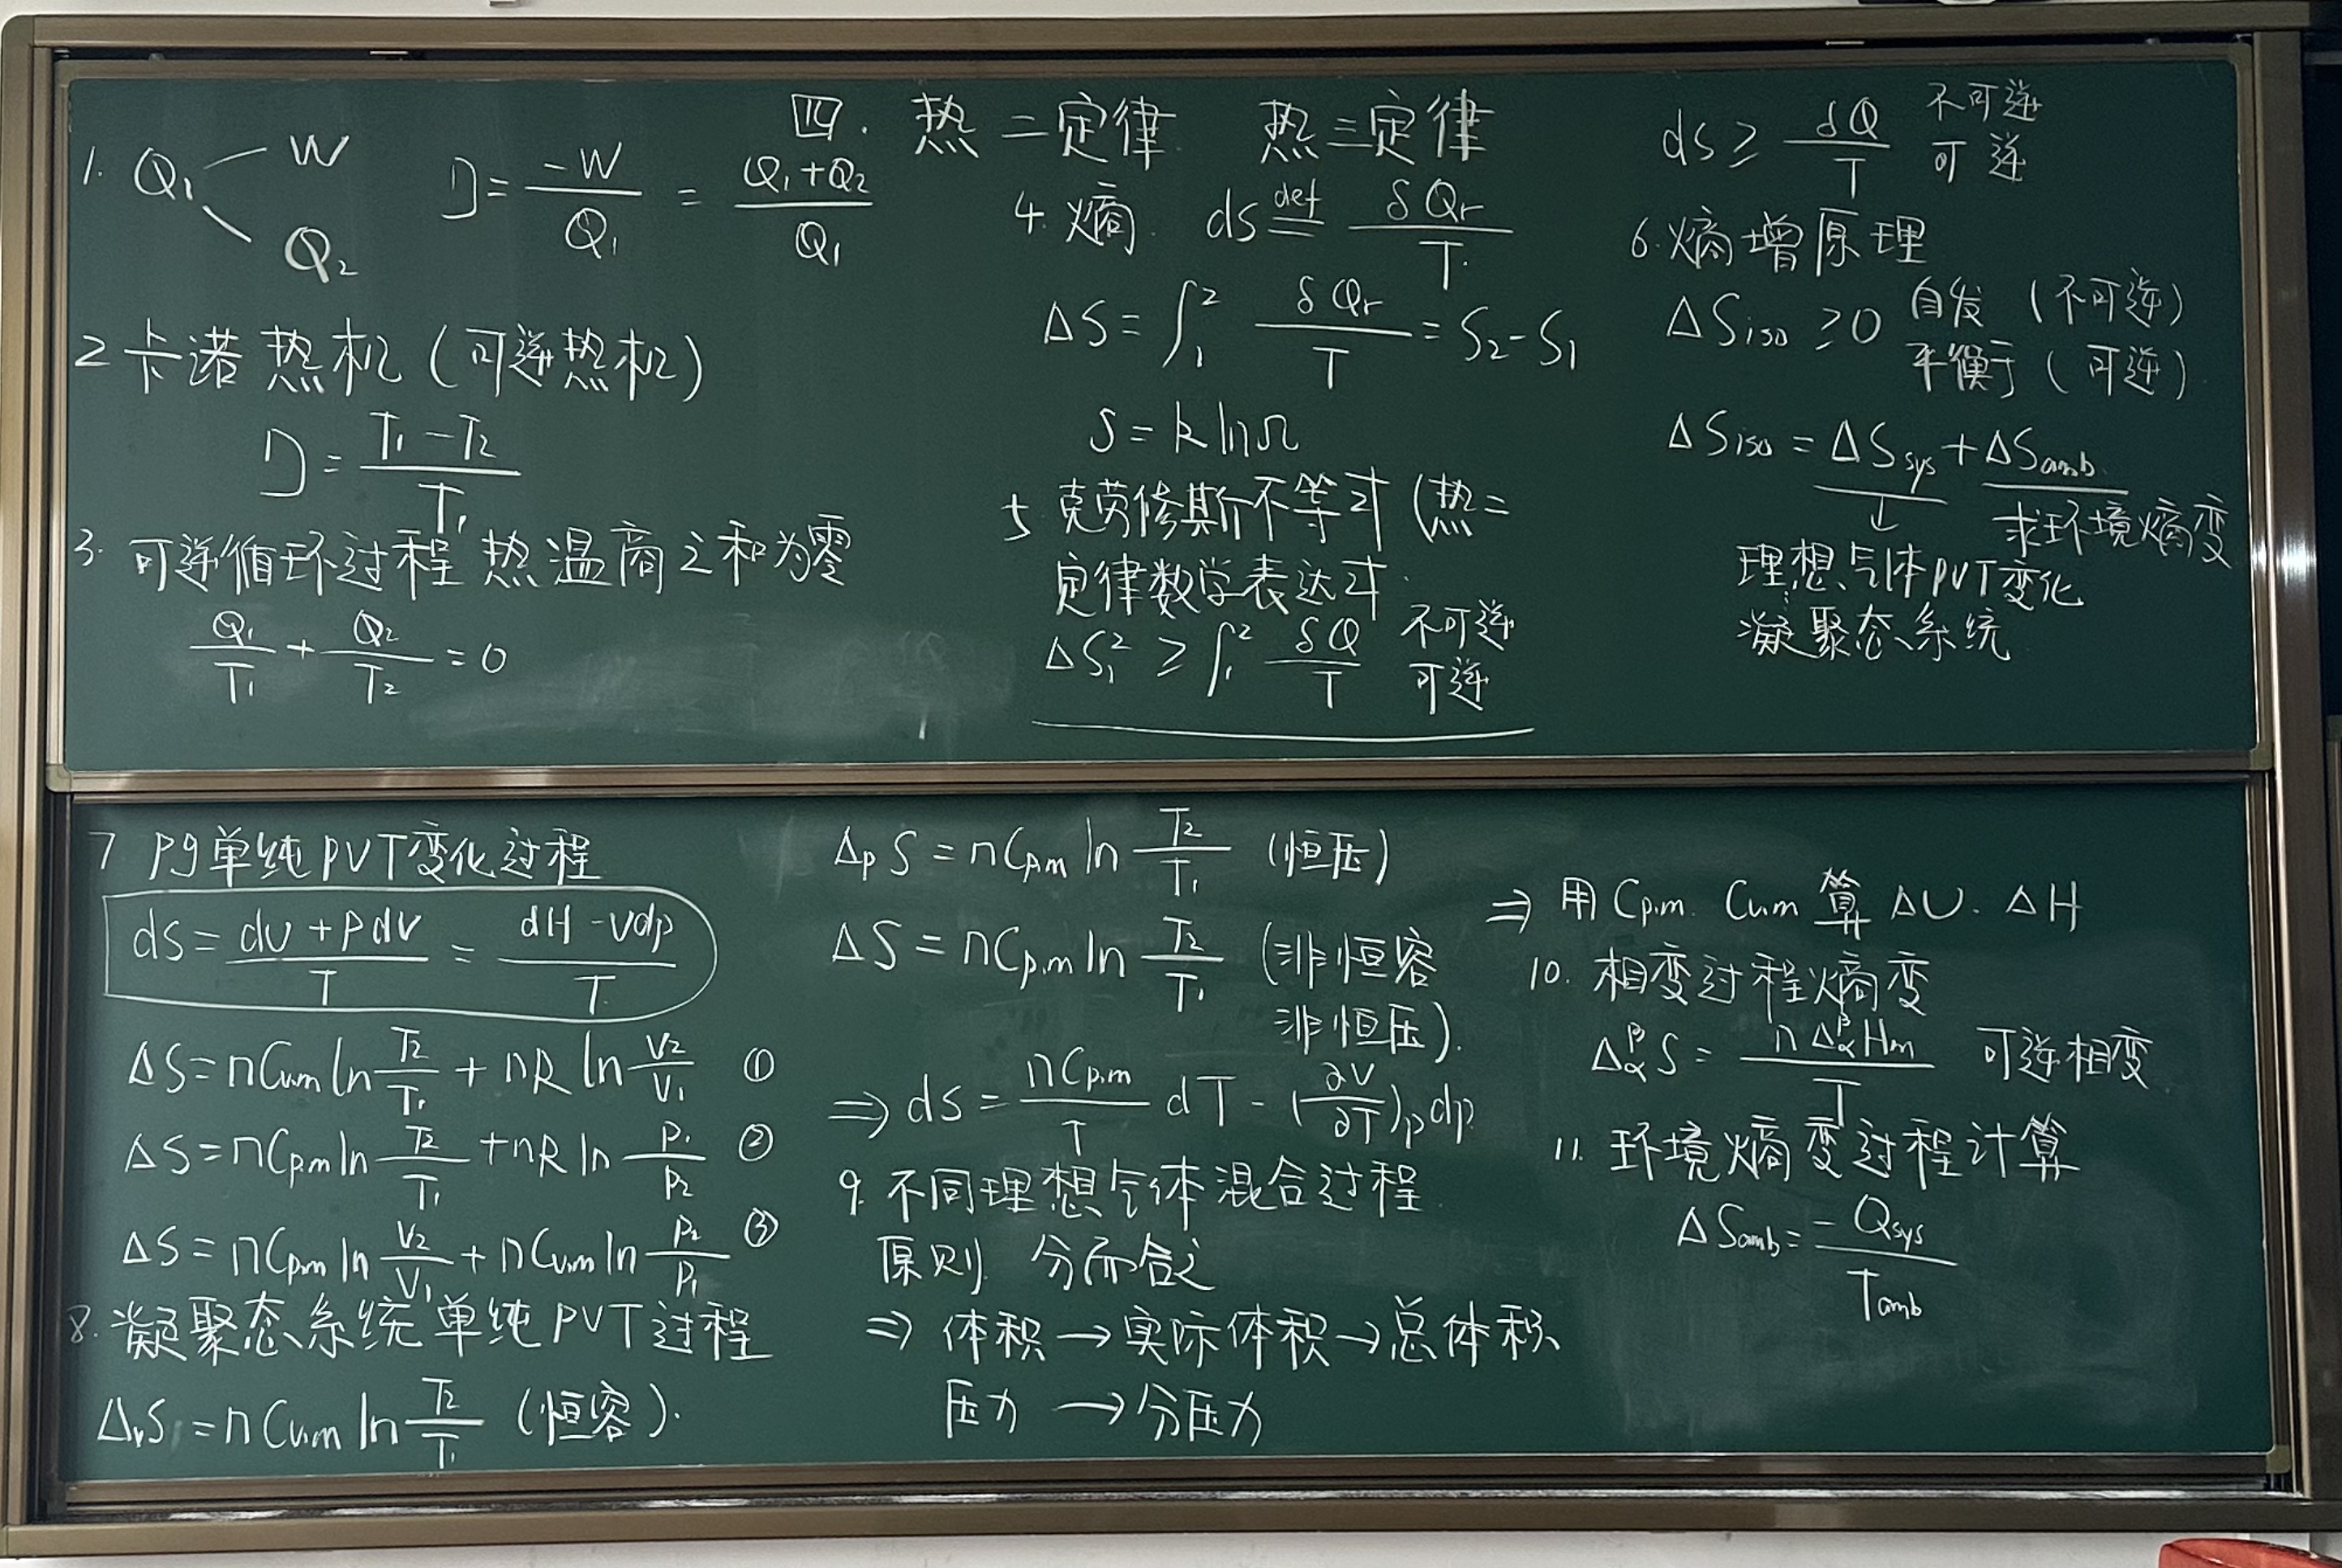 四. 热二定律 热三定律
1. Q₁ W Q₂ η = -W/Q₁ = (Q₁+Q₂)/Q₁
2 卡诺热机(可逆热机)
η = (T₁-T₂)/T₁
3. 可逆循环过程热温商之和为零
Q₁/T₁ + Q₂/T₂ = 0
4. 熵. dS ≝ δQr/T
ΔS = ∫₁² δQr/T = S₂-S₁
S = k lnΩ
5 克劳修斯不等式(热二
定律数学表达式.
ΔS₁² ≥ ∫₁² δQ/T 不可逆 可逆
dS ≥ δQ/T 不可逆 可逆
6. 熵增原理
ΔSiso ≥ 0 自发(不可逆) 平衡于(可逆)
ΔSiso = ΔSsys + ΔSamb.
↓ 求环境熵变
理想气体PVT变化
凝聚态系统
7 pg单纯PVT变化过程
dS = (dU + pdV)/T = (dH - Vdp)/T
ΔS = nCv,m ln T₂/T₁ + nR ln V₂/V₁ ①
ΔS = nCp,m ln T₂/T₁ + nR ln P₁/P₂ ②
ΔS = nCp,m ln V₂/V₁ + nCv,m ln P₂/P₁ ③
8. 凝聚态系统单纯PVT过程
ΔvS = nCv,m ln T₂/T₁ (恒容).
ΔpS = nCp,m ln T₂/T₁ (恒压)
ΔS = nCp,m ln T₂/T₁ (非恒容
非恒压).
⇒ dS = nCp,m/T dT - (∂V/∂T)p dp
9. 不同理想气体混合过程
原则 分而合之
⇒ 体积→实际体积→总体积
压力→分压力
⇒ 用Cp,m. Cv,m 算 ΔU. ΔH
10. 相变过程熵变
Δαᵝ S = nΔαᵝHm/T 可逆相变
11. 环境熵变过程计算
ΔSamb = -Qsys/Tamb